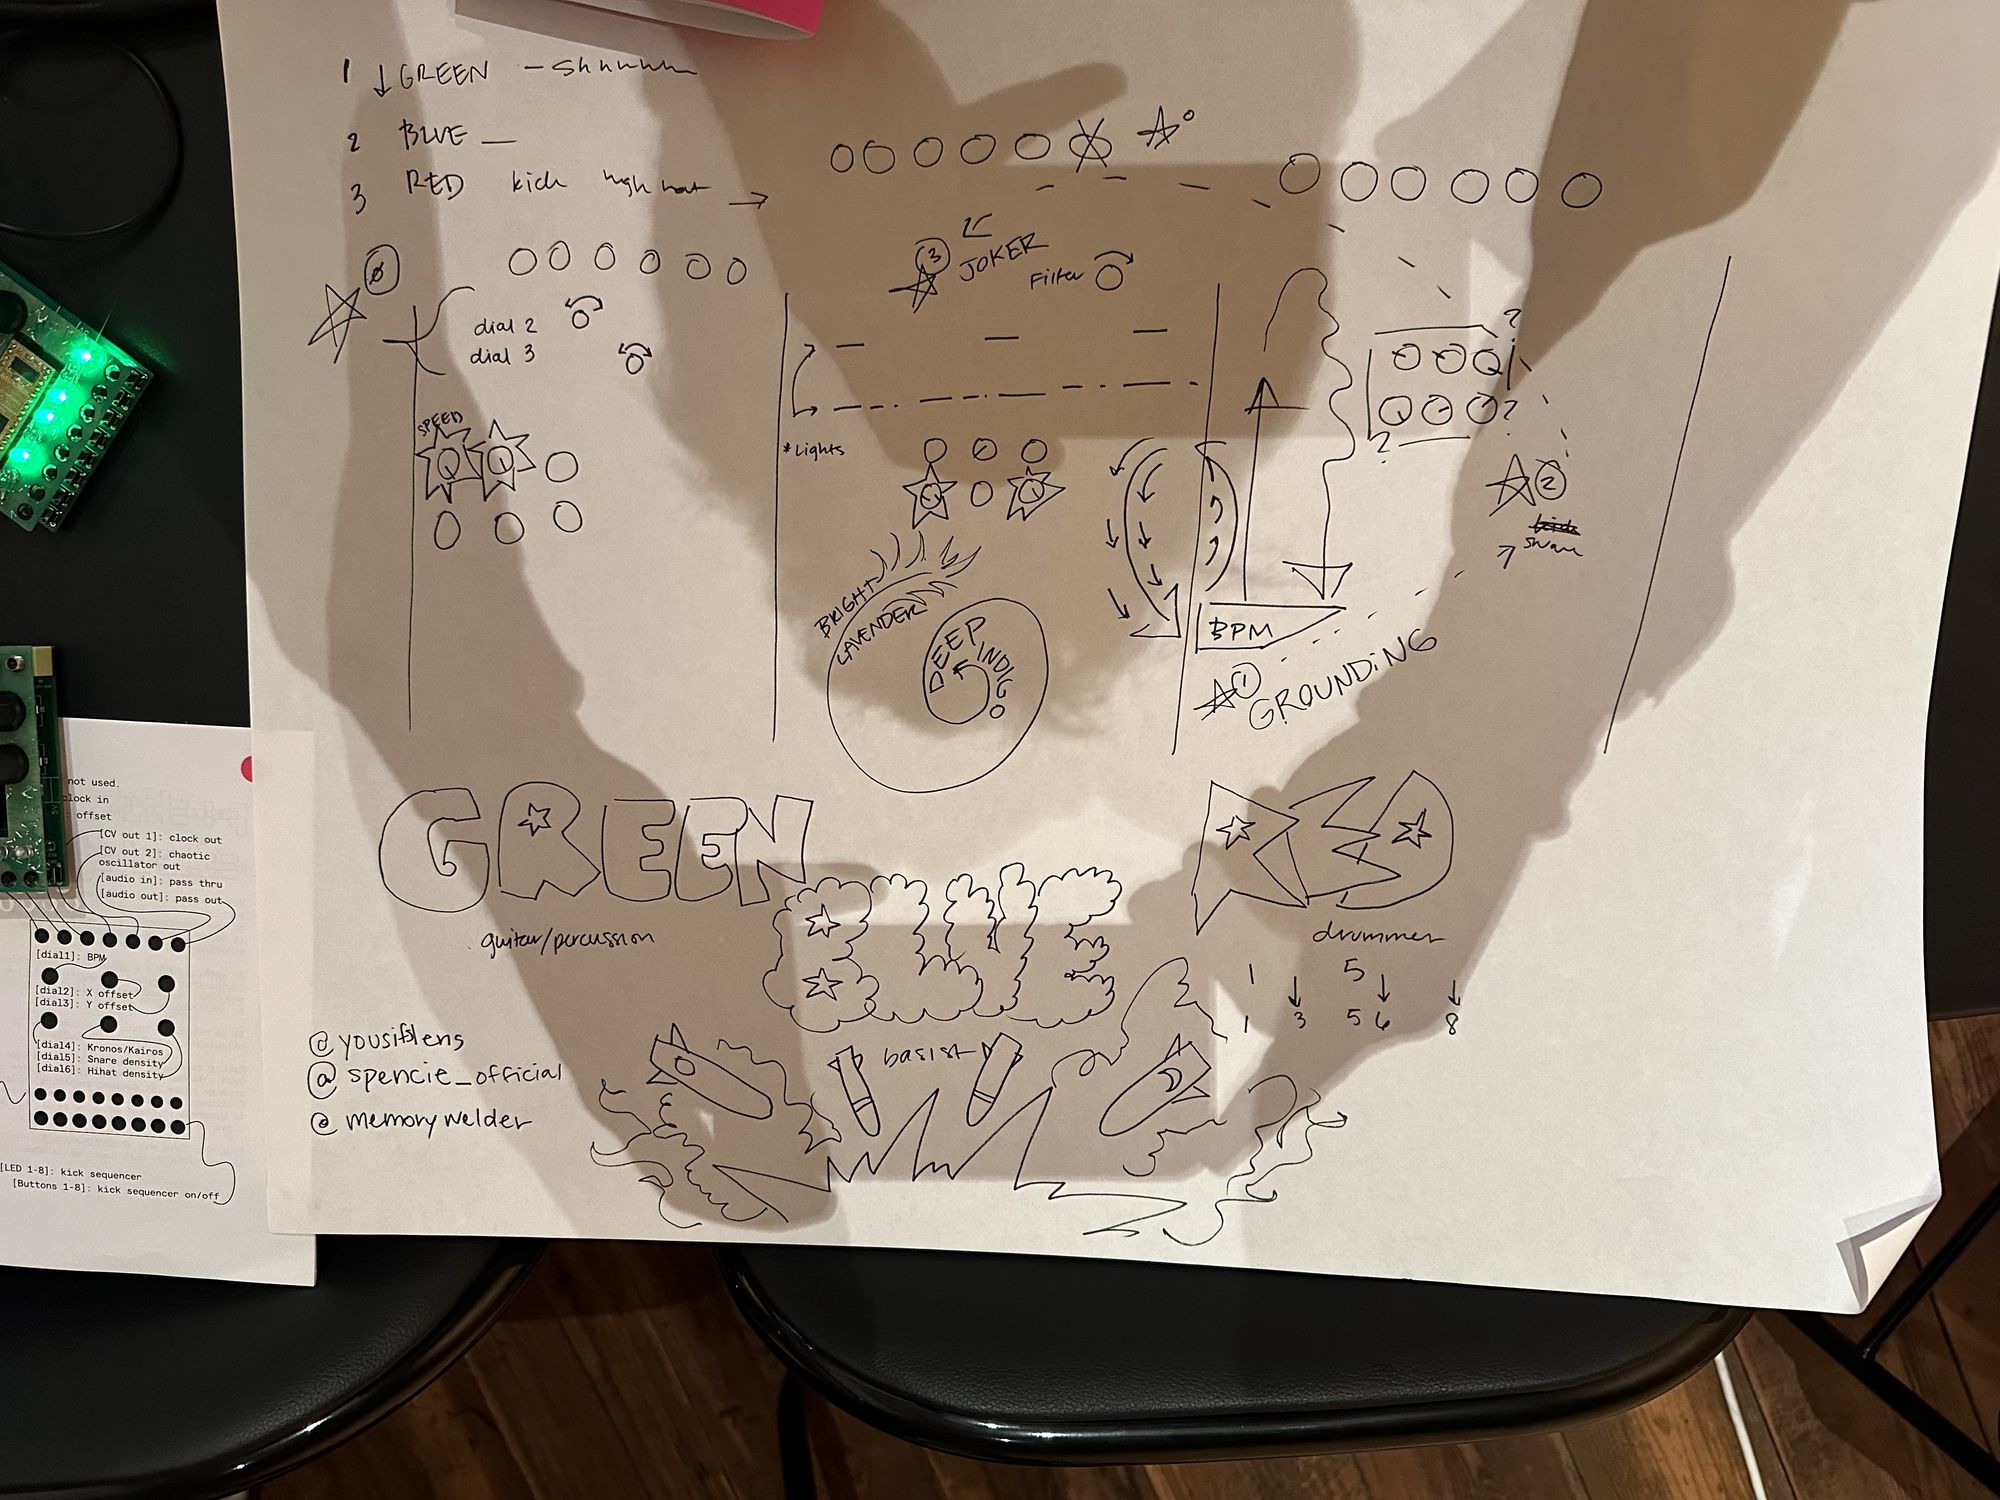 1 ↓ GREEN - Shhhhhh
2 BLUE _
3 RED kick high hat →
0
3
JOKER
Filter
dial 2
dial 3
SPEED
*Lights
?
?
?
2
snare
BRIGHT
LAVENDER
DEEP INDIGO
BPM
1
GROUNDING
GREEN
BLUE
RED
guitar/percussion
basist
drummer
1 5
1 3 5 6 8
@yousifslens
@spencie_official
@memorywelder
not used.
clock in
offset
[CV out 1]: clock out
[CV out 2]: chaotic
oscillator out
[audio in]: pass thru
[audio out]: pass out
[dial1]: BPM
[dial2]: X offset
[dial3]: Y offset
[dial4]: Kronos/Kairos
[dial5]: Snare density
[dial6]: Hihat density
[LED 1-8]: kick sequencer
[Buttons 1-8]: kick sequencer on/off